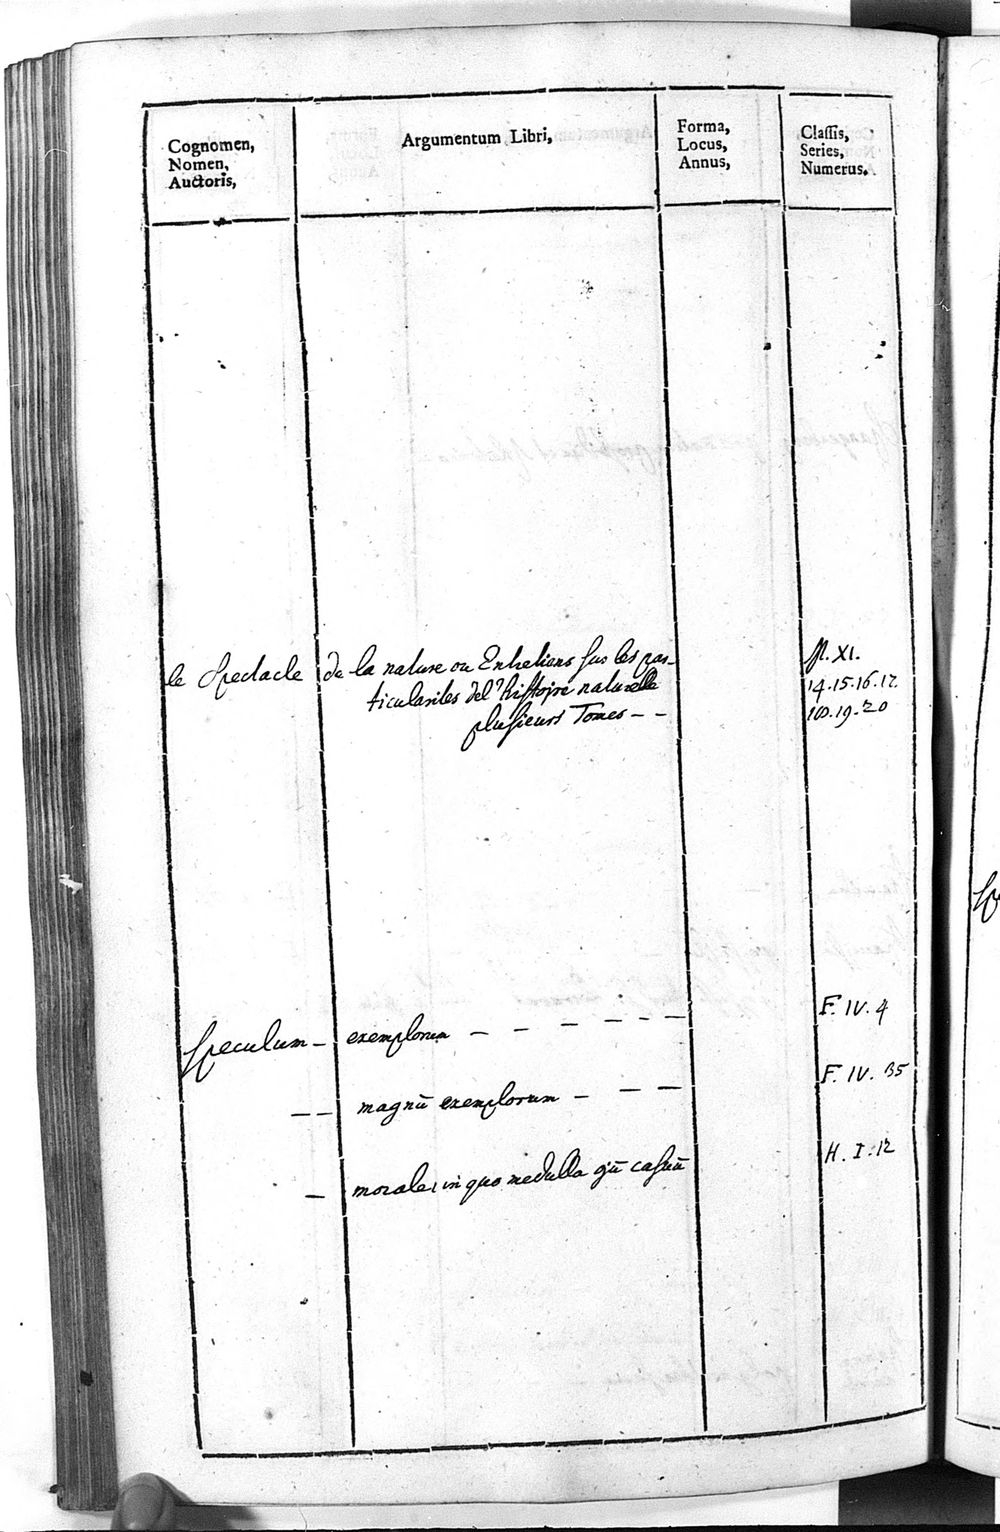 Cognomen,
Nomen,
Auctoris,
Argumentum Libri,
Forma,
Locus,
Annus,
Classis,
Series,
Numerus.
le Spectacle de la nature ou Entretiens sus les par-
ticularites del'histoire naturelle
plusieurs Tomes - -
XI.
14.15.16.17.
18.19.20
Speculum - exemplorum - - - - - - F. IV. 4
- - magnū exemplorum - - - F. IV. 35
- morale, in quo medulla casuū H. I. 12